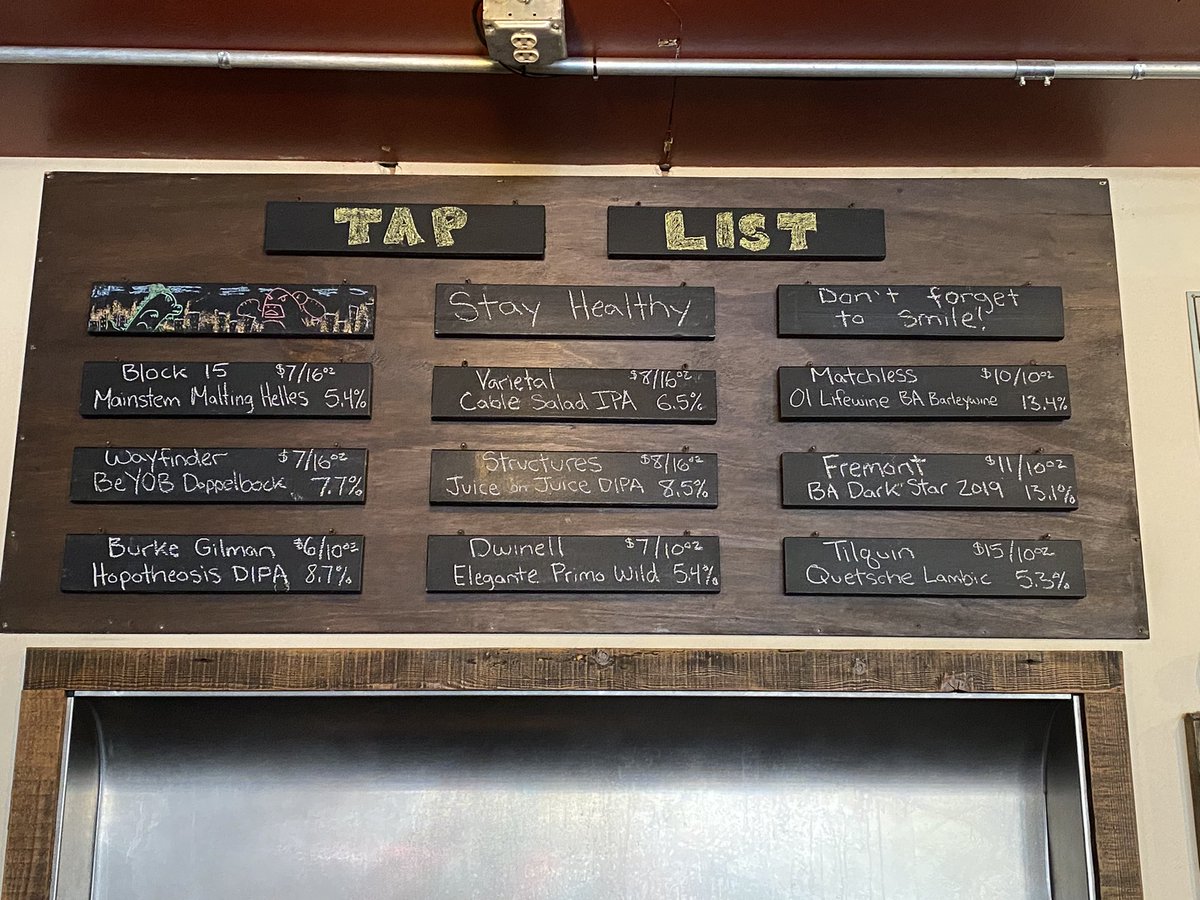 TAP LIST
Stay Healthy
Don't forget
to smile!
Block 15 $7/16oz
Mainstem Malting Helles 5.4%
Varietal $8/16oz
Cable Salad IPA 6.5%
Matchless $10/10oz
Ol Lifewine BA Barleywine 13.4%
Wayfinder $7/16oz
BeYOB Doppelbock 7.7%
Structures $8/16oz
Juice on Juice DIPA 8.5%
Fremont $11/10oz
BA Dark Star 2019 13.1%
Burke Gilman $6/10oz
Hopotheosis DIPA 8.7%
Dwinell $7/10oz
Elegante Primo Wild 5.4%
Tilquin $15/10oz
Quetsche Lambic 5.3%